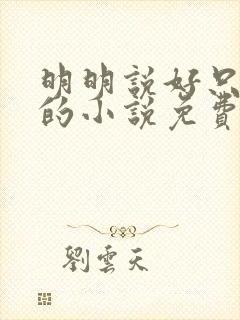 明明說好只
的小說免費
劉雲天